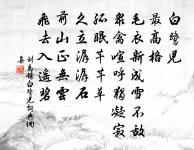 白鷺兒
最高格
毛衣新成雪不敵
衆禽喧呼獨凝寂
孤眠芊芊草
久立潺潺石
前山正無雲
飛去入遥碧
劉禹錫白鷺兒詞典網
集